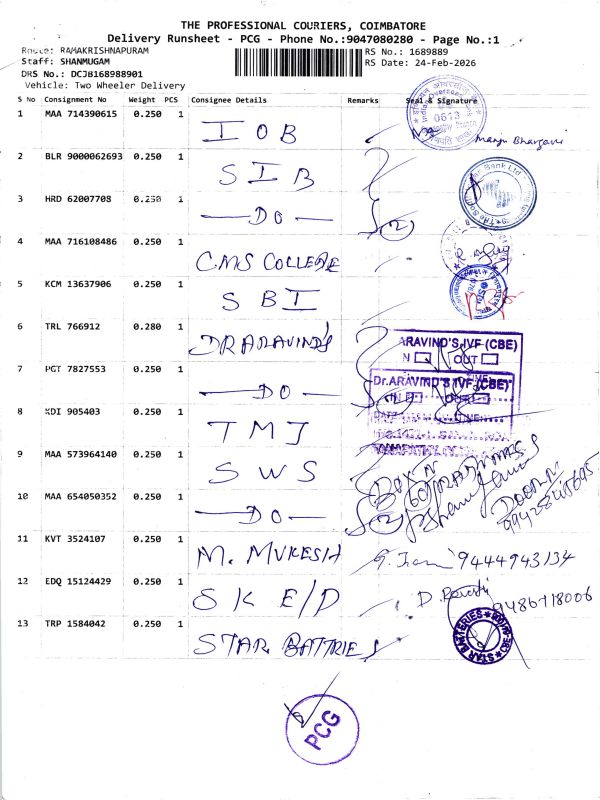 THE PROFESSIONAL COURIERS, COIMBATORE
Delivery Runsheet - PCG - Phone No.:9047080280 - Page No.:1
Route: RAMAKRISHNAPURAM
RS No.: 1689889
Staff: SHANMUGAM
RS Date: 24-Feb-2026
DRS No.: DCJB168988901
Vehicle: Two Wheeler Delivery
S No Consignment No Weight PCS Consignee Details Remarks Seal & Signature
1 MAA 714390615 0.250 1 IOB Manju Bhargavi
0613
2 BLR 9000062693 0.250 1 SIB
3 HRD 62007708 0.250 1 —DO— (2)
4 MAA 716108486 0.250 1 CMS COLLEGE
5 KCM 13637906 0.250 1 SBI
6 TRL 766912 0.280 1 DR ARAVIND'S
ARAVIND'S IVF (CBE)
IN OUT
7 PGT 7827553 0.250 1 —DO—
Dr.ARAVIND'S IVF (CBE)
8 KDI 905403 0.250 1 TMJ
9 MAA 573964140 0.250 1 SWS
10 MAA 654050352 0.250 1 —DO— (2)
11 KVT 3524107 0.250 1 M. MUKESH 9444943134
12 EDQ 15124429 0.250 1 SK E/D D. Revathi 9486718006
13 TRP 1584042 0.250 1 STAR BATTRIES
STAR BATTERIES CBE
PCG